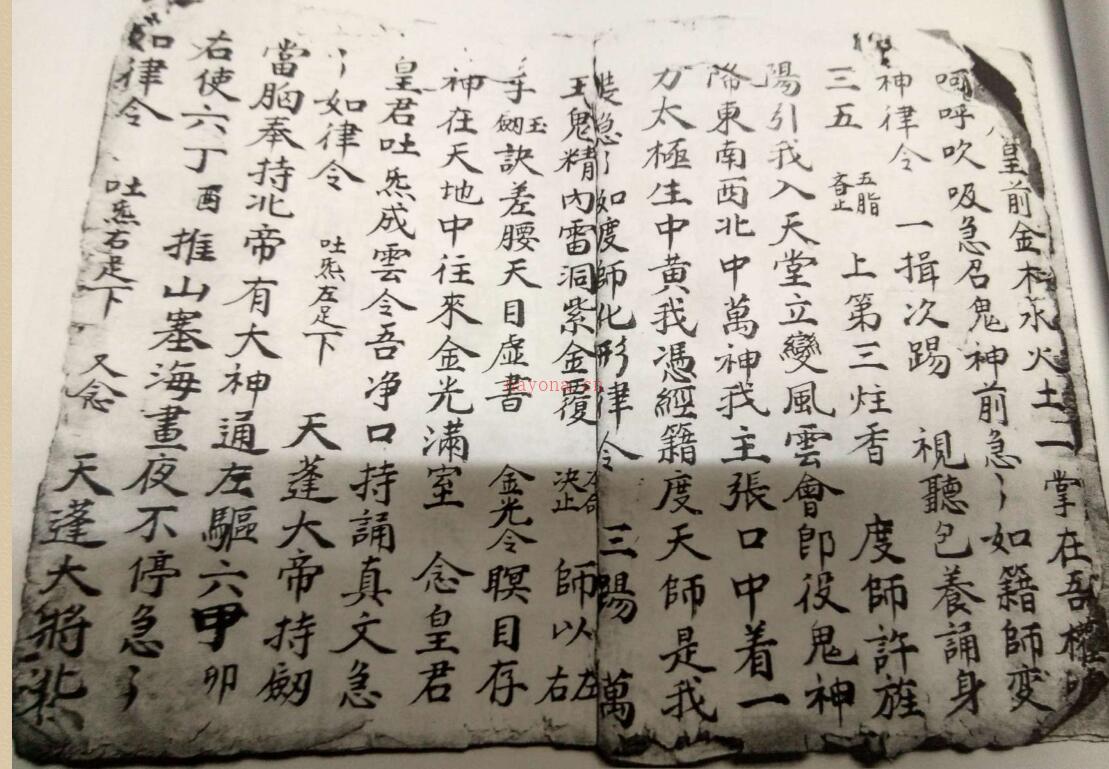 皇前金木水火土一掌在吾權
呵呼吹吸急召鬼神前急〻如籍師变
神律令 一揖次踢 視聽包養誦身
三五 五脂吝止 上第三炷香 度師許旌
陽引我入天堂立變風雲會即役鬼神
降東南西北中萬神我主張口中着一
力太極生中黃我憑經籍度天師是我
裝急〻如度師化形律令 三陽 萬
王鬼精內雷洞紫金覆 决止 師以左右
手玉劒訣差腰天目虛書 金光令瞑目存
神在天地中往來金光滿室 念皇君
皇君吐炁成雲令吾净口持誦真文急
〻如律令 吐炁左足下 天蓬大帝持劒
當胸奉持北帝有大神通左驅六甲卯
右使六丁酉推山塞海晝夜不停急〻
如律令 吐炁右足下 又念 天蓬大將北
nayona.cn